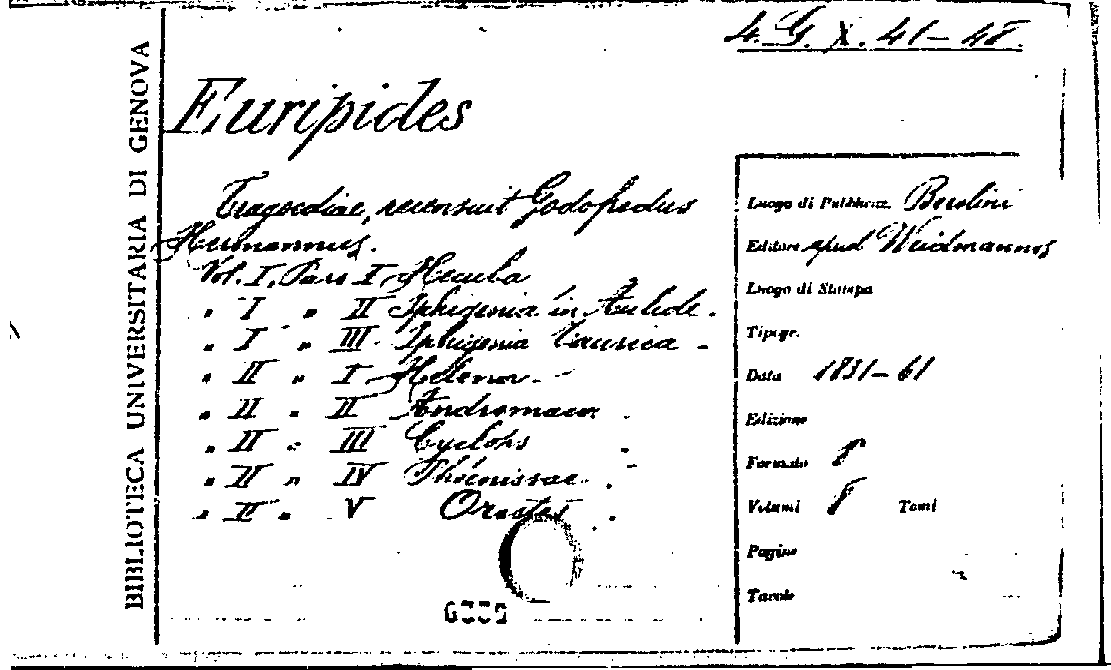 4. G. X. 41-48.
BIBLIOTECA UNIVERSITARIA DI GENOVA
Euripides
Tragoediae, recensuit Godofredus
Hermannus.
Vol. I, Pars I, Hecuba
" I " II Iphigenia in Aulide.
" I " III. Iphigenia Taurica -
" II " I Helena. -
" II " II Andromaca
" II " III Cyclops
" II " IV Phoenissae.
" II " V Orestes
Luogo di Pubblicaz. Berolini
Editore apud Weidmannos
Luogo di Stampa
Tipogr.
Data 1831-61
Edizione
Formato 8
Volumi 8 Tomi
Pagine
Tavole